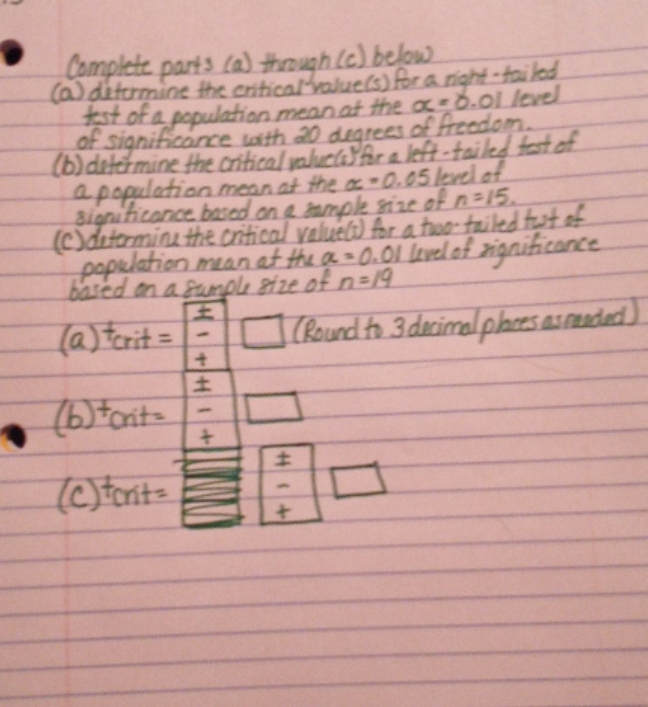 Complete parts (a) through (c) below
(a) determine the critical value(s) for a right-tailed
test of a population mean at the α=0.01 level
of significance with 20 degrees of freedom.
(b) determine the critical value(s) for a left-tailed test of
a population mean at the α=0.05 level of
significance based on a sample size of n=15.
(c) determine the critical value(s) for a two-tailed test of
population mean at the α=0.01 level of significance
based on a sample size of n=19
±
(a) tcrit = - (Round to 3 decimal places as needed)
+
±
(b) tcrit= -
+
±
(c) tcrit= -
+